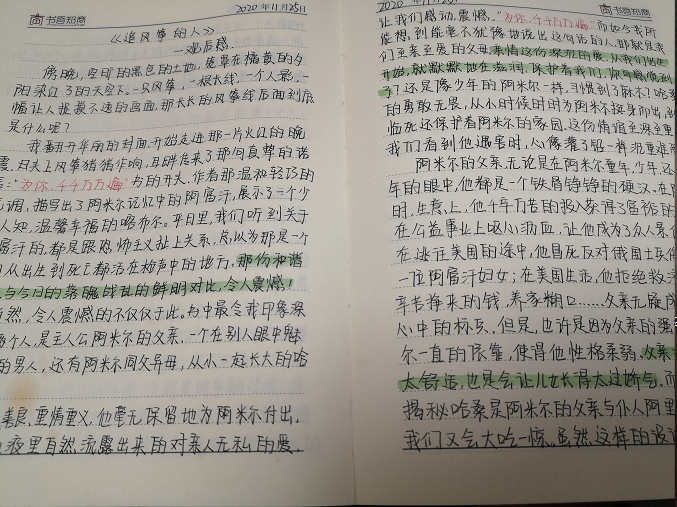 书香知商
2020年11月25日
《追风筝的人》
—观后感.
傍晚,空旷的黑色的土地,笼罩在橘黄的夕
阳染红了的天空下.一只风筝,一根长线,一个人影,一
幅让人捉摸不透的画面.那长长的风筝线后面到底
是什么呢?
我翻开华丽的封面.开始走进那一片火红的晚
霞.归天上风筝猎猎作响,耳畔传来了那句真挚的诺
:“为你,千千万万遍”书的开头.作者那温和轻巧的
调,描写出了阿米尔记忆中的阿富汗,展示了一个少
人知,温馨幸福的喀布尔.平日里,我们听到关于
富汗的,都是跟恐怖主义扯上关系,总以为那是一个
从出生到死亡都活在枪声中的地方,那份和谐
与今日的落魄战乱的鲜明对比,令人震憾!
然,令人震憾的不仅仅于此.书中最令我印象深
两个人,是主人公阿米尔的父亲.一个在别人眼中魅
的男人,还有阿米尔同父异母,从小一起长大的哈
善良,重情重义,他毫无保留地为阿米尔付出.
夜里自然流露出来的对亲人无私的爱.
书香知商
2020年11月25日
让我们感动.震憾.“为你,千千万万遍”而如今我所
能想到能毫不犹豫地说出这句话的人,那就是我
们至亲至爱的父母.亲情这份深沉的爱,从我们出生
开始,就默默地在滋润,保护着我们.你可感觉到
了?还是像少年的阿米尔一样,习惯到了麻木?哈桑
的勇敢无畏,从小时候时时为阿米尔挺身而出,
临死还保护着阿米尔的家园.这份情谊至深至重
我们看到他遇害时,心像灌了铅一样沉重难
阿米尔的父亲,无论是在阿米尔童年,少年还
年的眼中,他都是一个铁骨铮铮的硬汉.在
时.生意上,他千辛万苦的投入获得了富裕的
在公益事业上呕心沥血,让他成为了众人景仰
在逃往美国的途中,他冒死反对俄国士兵
一位阿富汗妇女;在美国生活,他拒绝救济
辛苦挣来的钱,养家糊口……父亲无疑成
心中的标杆.但是,也许是因为父亲的强
尔一直的依靠,使得他性格柔弱,父亲
太舒适,也是会让儿女长得太过娇气.而
揭秘哈桑是阿米尔的父亲与仆人阿里
我们又会大吃一惊.虽然这样的设